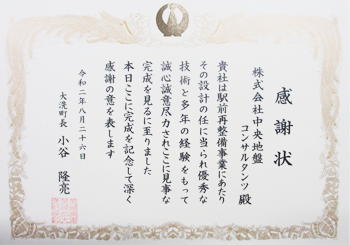 感謝状
株式会社中央地盤
コンサルタンツ 殿
貴社は駅前再整備事業にあたり
その設計の任に当られ優秀な
技術と多年の経験をもって
誠心誠意尽力されここに見事な
完成を見るに至りました
本日ここに完成を記念して深く
感謝の意を表します
令和二年八月二十六日
大洗町長 小谷 隆亮